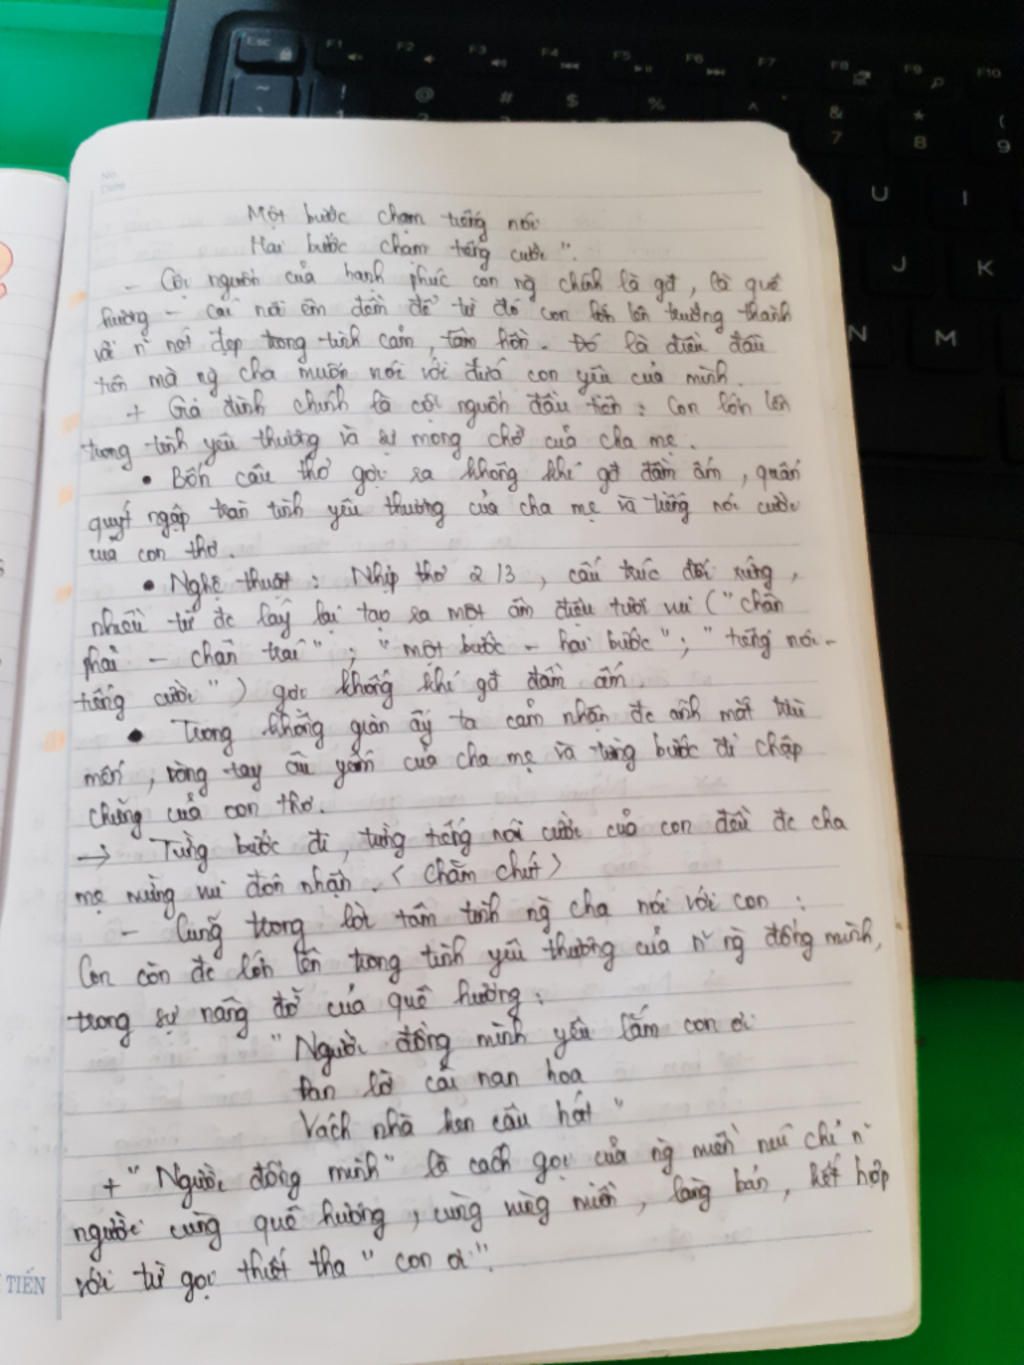 No.
Date
Một bước chạm tiếng nói
Hai bước chạm tiếng cười".
- Cội nguồn của hạnh phúc con ng chính là gđ, là quê
hương - cái nôi êm đềm để từ đó con lớn lên trưởng thành
với n~ nét đẹp trong tình cảm, tâm hồn. Đó là điều đầu
tiên mà ng cha muốn nói với đứa con yêu của mình.
+ Gia đình chính là cội nguồn đầu tiên: Con lớn lên
trong tình yêu thương và sự mong chờ của cha mẹ.
• Bốn câu thơ gợi ra không khí gđ đầm ấm, quấn
quýt ngập tràn tình yêu thương của cha mẹ và tiếng nói cười
của con thơ.
• Nghệ thuật: Nhịp thơ 2/3, cấu trúc đối xứng,
nhiều từ đc láy lại tạo ra một âm điệu tươi vui ("chân
phải - chân trái"; "một bước - hai bước"; "tiếng nói -
tiếng cười") gợi không khí gđ đầm ấm.
• Trong không gian ấy ta cảm nhận đc ánh mắt trìu
mến, vòng tay âu yếm của cha mẹ và từng bước đi chập
chững của con thơ.
→ Từng bước đi, từng tiếng nói cười của con đều đc cha
mẹ mừng vui đón nhận. < Chăm chút >
- Cũng trong lời tâm tình ng cha nói với con:
Con còn đc lớn lên trong tình yêu thương của n~ ng đồng mình,
trong sự nâng đỡ của quê hương:
"Người đồng mình yêu lắm con ơi
Đan lờ cài nan hoa
Vách nhà ken câu hát"
+ "Người đồng mình" là cách gọi của ng miền núi chỉ n~
người cùng quê hương, cùng vùng miền, làng bản, kết hợp
với từ gọi thiết tha "con ơi".
TIẾN